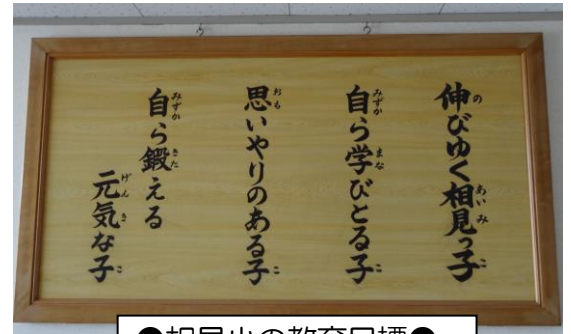 伸びゆく相見っ子
自ら学びとる子
思いやりのある子
自ら鍛える
元気な子
●相見小の教育目標●